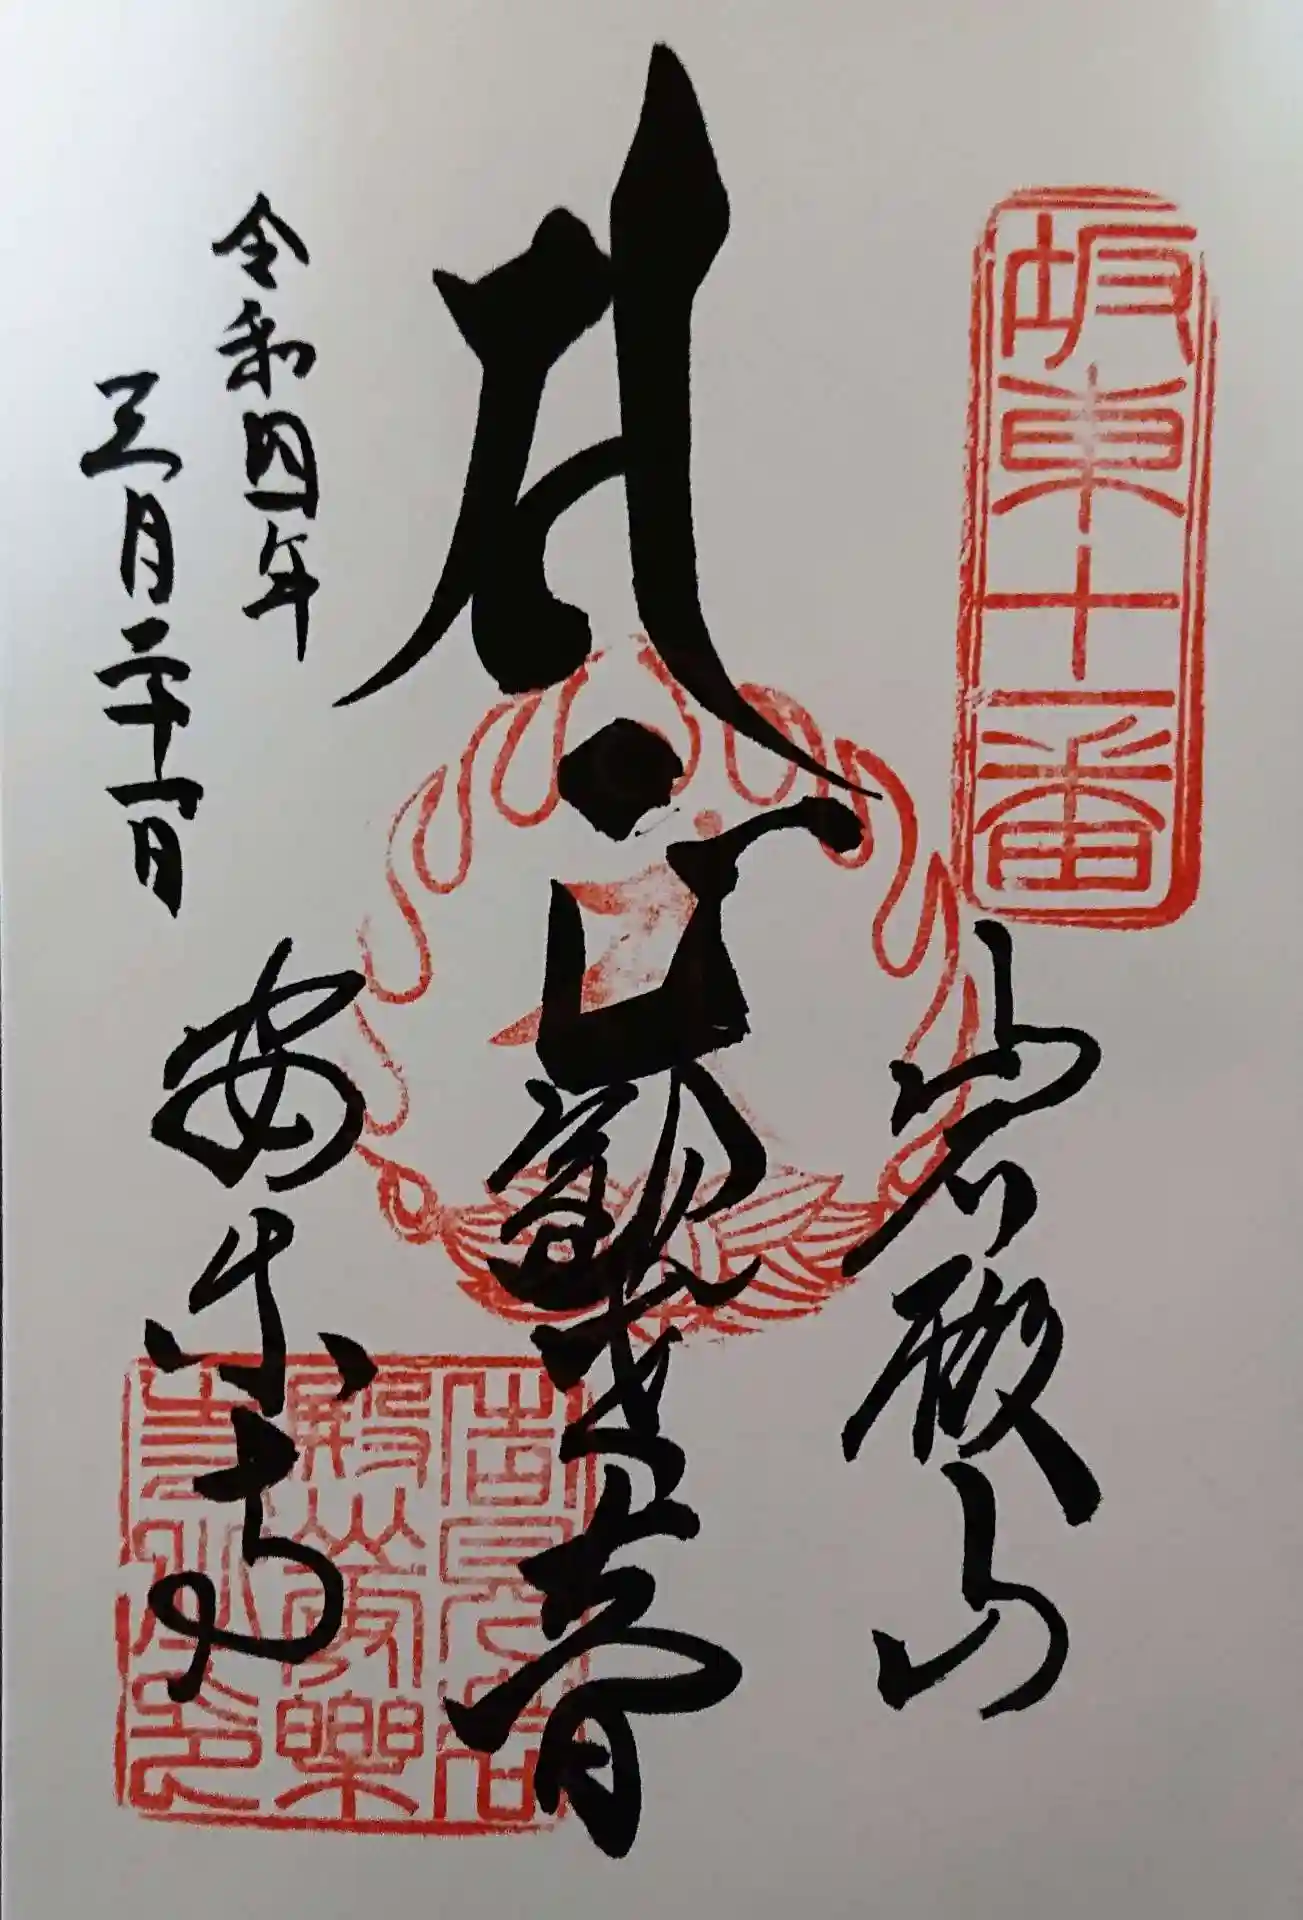 坂東十一番
岩殿山
サ 聖観世音
令和四年
三月二十一日
安楽寺